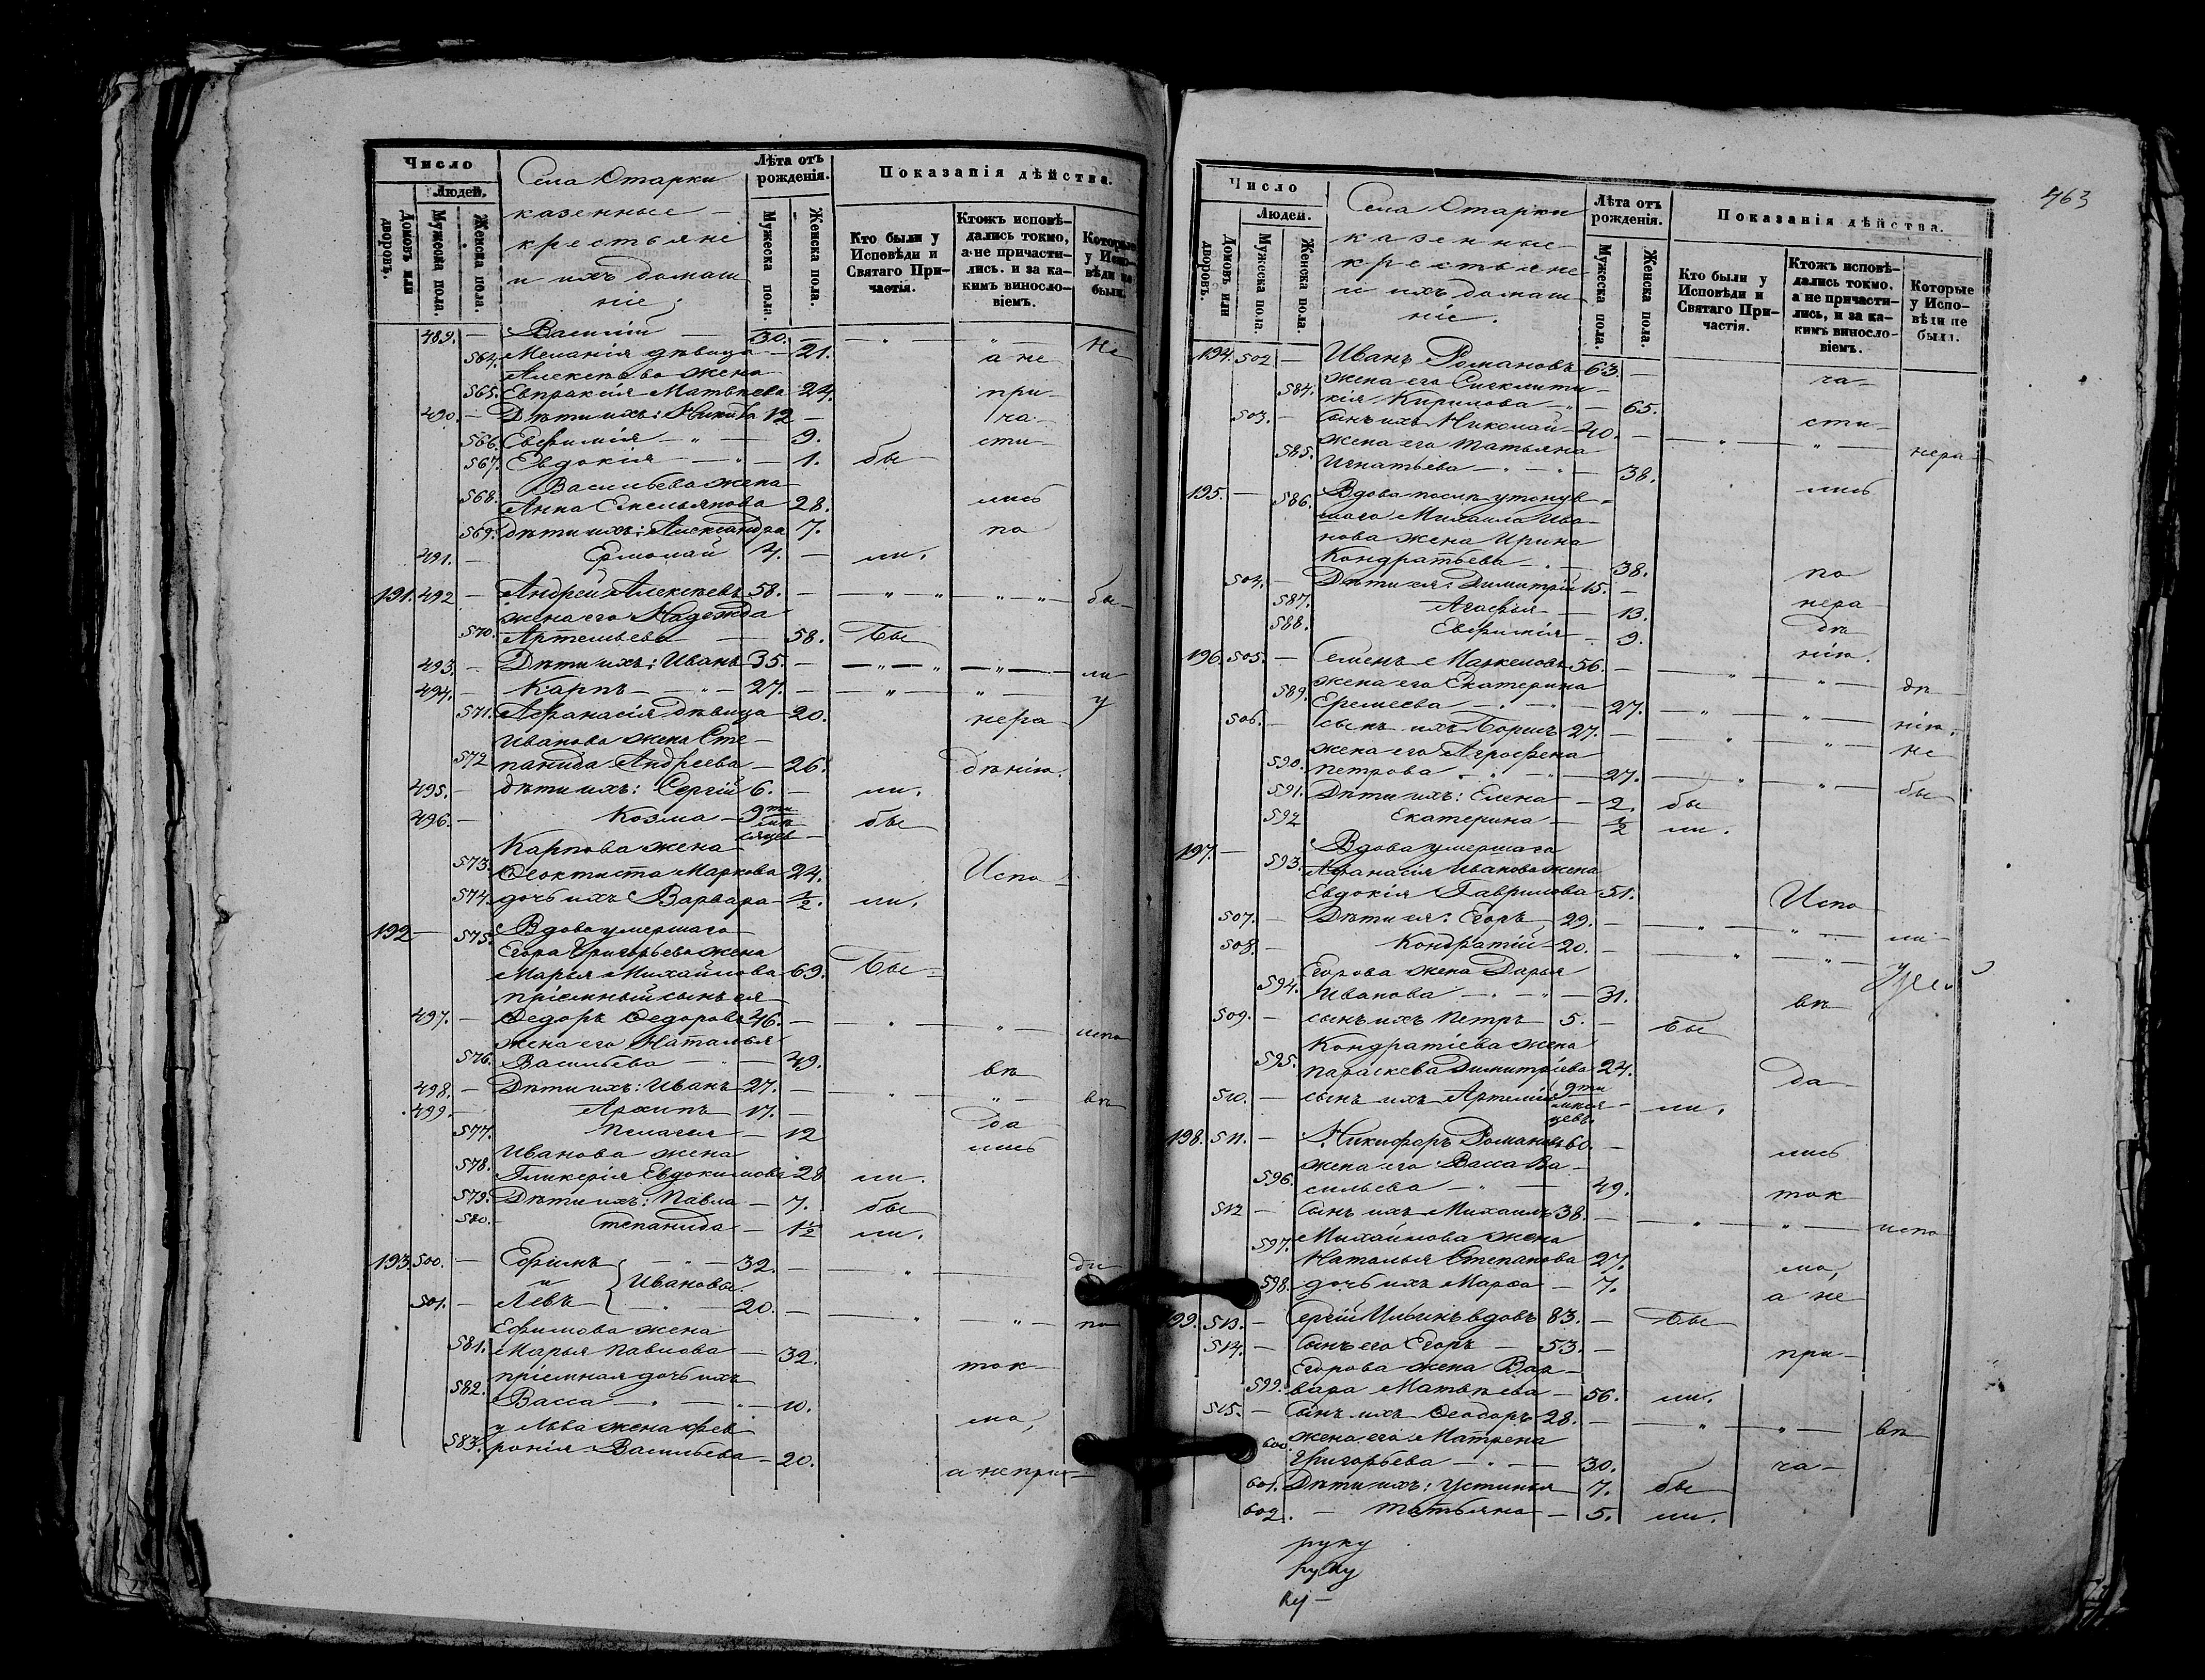 Число
Людей.
Домовъ или дворовъ.
Мужеска пола.
Женска пола.
Села Отарки
казенные
крестьяне
и ихъ домаш
ніе;
Лѣта отъ рожденія.
Мужеска пола.
Женска пола.
Показанія дѣйства.
Кто были у Исповѣди и Святаго Причастія.
Ктожъ исповѣдались токмо, а не причастились. и за какимъ винословіемъ.
Которые у Исповѣди не были.
489. — Василій — 30. — " — " — не
564. Меланія дѣвица — 21. а не
Алексѣева жена
565. Евпраксія Матвѣева 24. при-
490. — Дѣти ихъ: Никита 12 — ча-
566. Евфимія — " — 9. сти-
567. Евдокія — " — 1. бы-
Васильева жена
568. Анна Емельянова 28. лись
569. дѣти ихъ: Александра 7. по
491. — Ермолай 4. — ли.
191. 492 — Андрей Алексѣевъ 58. — " — " " — " бы-
жена его Надежда
570. Артемьева — 58. Бы
493. — Дѣти ихъ: Иванъ 35. — " — " — " — ли
494. — Карпъ — " — 27. — " — " — у
571. Афанасія дѣвица — 20. нера
Иванова жена Сте-
572 панида Андреева — 26. дѣнію.
495. — дѣти ихъ: Сергій 6. — ли.
496. — Козма — 9ти мѣсяцев — бы
Карпова жена
573. Ѳеоктиста Маркова 24. Испо-
574. дочь ихъ Варвара — 1/2. ли.
192 — 575. Вдова умершаго
Егора Григорьева жена
Марья Михайлова 69. Бы-
пріемный сынъ ея
497. — Ѳедоръ Ѳедоровъ 46. — " — " — испо
жена его Наталья
576. Васильева — " — 49. вѣ
498. — Дѣти ихъ: Иванъ 27. — " — " — вѣ
499. — Архипъ 17. — да
577. Пелагея — 12 лись
Иванова жена
578. Гликерія Евдокимова 28 ли.
579. Дѣти ихъ: Павла — 7. бы
580. — Степанида — 1 1/2 ли.
193. 500. — Ефимъ — " — 32. — " — ди
и Ивановы
501. — Левъ — " — 20. — " — " — по
Ефимова жена
581. Марья Павлова — 32. ток-
пріемная дочь ихъ
582. Васса — " — " — 10. мо,
у Льва жена Фев
583. ронія Васильева — 20. а непри-
463
Число
Людей.
Домовъ или дворовъ.
Мужеска пола.
Женска пола
Села Отарки
казенные
крестьяне
и ихъ домаш
ніе.
Лѣта отъ рожденія.
Мужеска пола.
Женска пола.
Показанія дѣйства.
Кто были у Исповѣди и Святаго Причастія.
Ктожъ исповѣдались токмо. а не причастились, и за какимъ винословіемъ.
Которые у Исповѣди не были.
194. 502 — Иванъ Романовъ 63. — ча-
жена его
584. Кирилова — " — 65. сти-
503. — Сынъ ихъ Николай 40. — " — " — нера
жена его Татьяна
585. Игнатьева — " — " — 38. лись
195. — 586. Вдова послѣ утонув-
шаго Михаила Ива-
нова жена Ирина
Кондратьева — 38. по
504. — Дѣти ея: Димитрій 15. — нера
587. Агафія — 13. дѣ
588. Евфимія — 9. нію.
196. 505. — Семенъ Маркеловъ 56. — " — " — дѣ
жена его Екатерина
589. Еремеева — " — 27. — " — " — нію.
506. — сынъ ихъ Борисъ 27. — " — " — не
жена его Агрофена
590. Петрова — " — 27. — " — " — бы
591. Дѣти ихъ: Елена — 2. бы
592 Екатерина — 1/2 ли.
197. — Вдова умершаго
593. Афанасія Иванова жена
Евдокія Гаврилова 51. Испо
507. — Дѣти ея: Егоръ 29. — " — " — ли
508. — Кондратій 20. — " — " — у
Егорова жена Дарья
594. Иванова — " — " — 31. вѣ
509. — сынъ ихъ Петръ 5. — Бы
Кондратіева жена
595. Параскева Димитріева 24. да
510. — сынъ ихъ Артемій 9ти мѣсяцевъ — ли.
198. 511. — Никифоръ Романовъ 60. — лись
жена его Васса Ва-
596. сильева — " — 49. ток
512 — Сынъ ихъ Михаилъ 38. — " — " — испо
597. Михайлова жена
Наталья Степанова 27. мо,
598. дочь ихъ Марѳа — 7. а не
199. 513. — Сергій Ильинъ вдовъ 83. — Бы
514. — Сынъ его Егоръ — 53. — при-
Егорова жена Вар-
599. вара Матвѣева — 56. ли.
515. — Сынъ ихъ Ѳеодоръ 28. — " — " — вѣ
600. жена его Матрена
Григорьева — " — 30. ча-
601. Дѣти ихъ: Устинья 7. бы
602. — Татьяна — 5. ли.
руку
руку